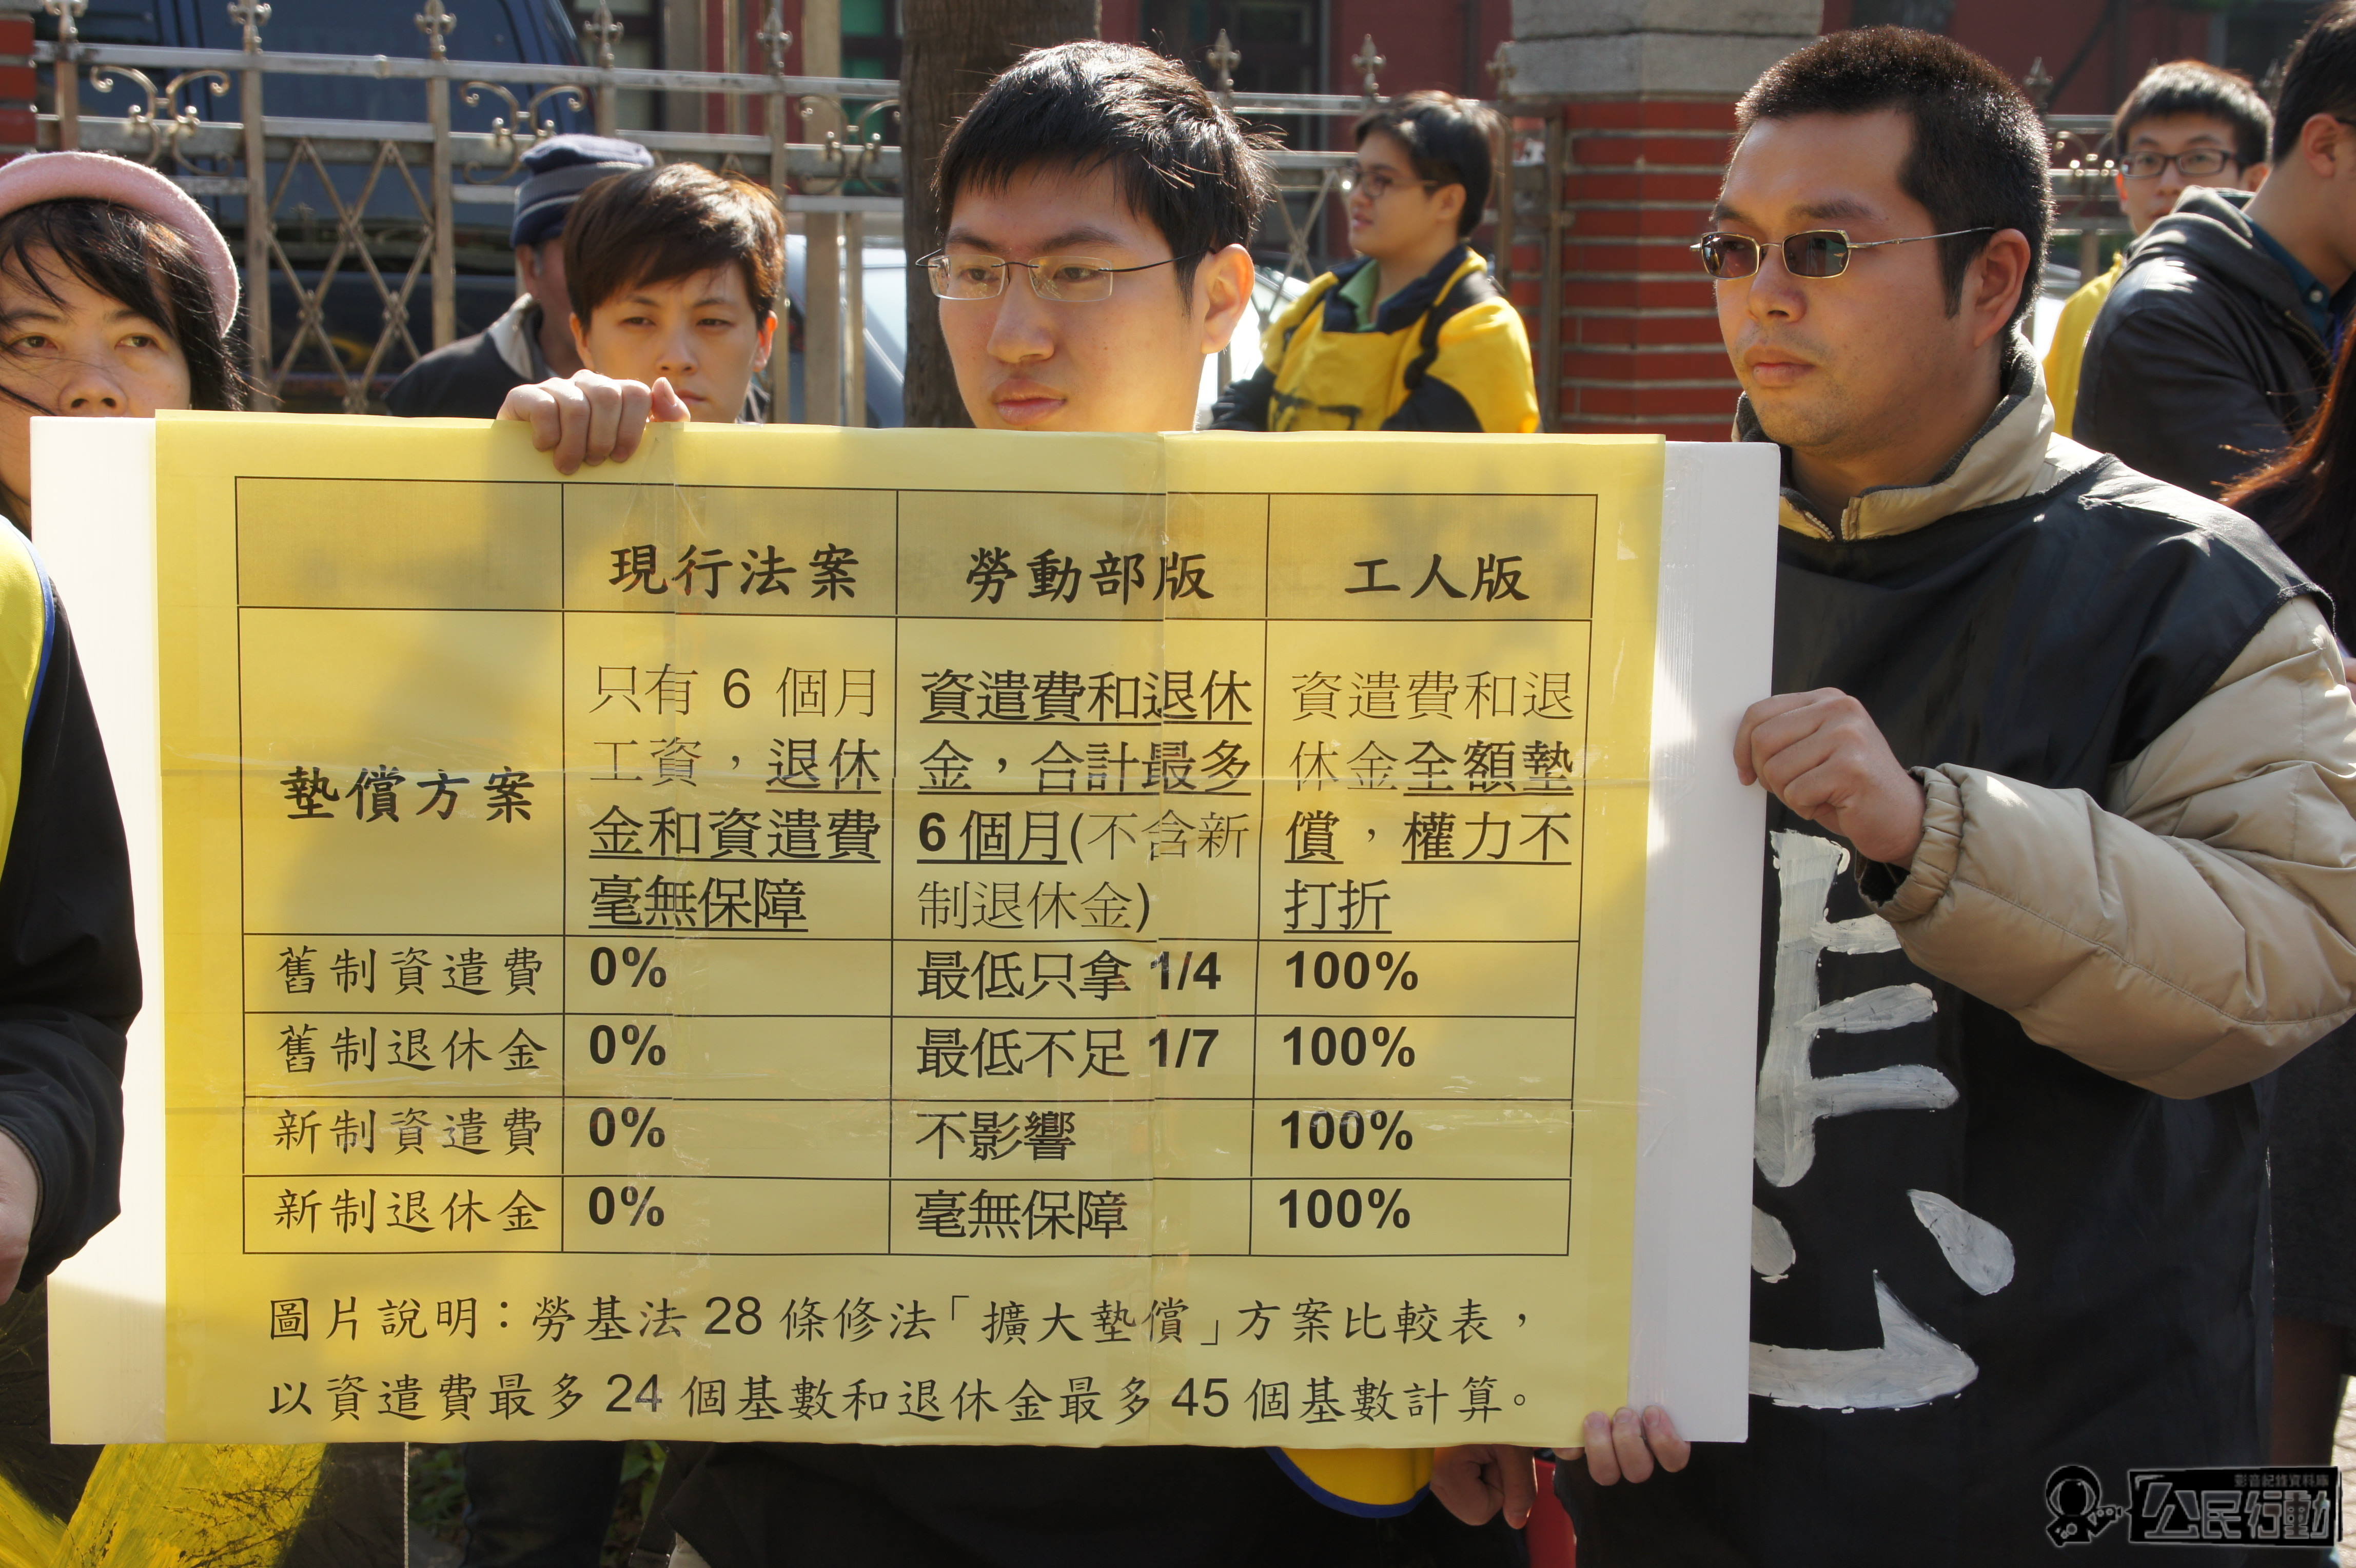 現行法案 勞動部版 工人版
墊償方案
只有 6 個月
工資，退休
金和資遣費
毫無保障
資遣費和退休
金，合計最多
6 個月(不含新
制退休金)
資遣費和退
休金全額墊
償，權力不
打折
舊制資遣費 0% 最低只拿 1/4 100%
舊制退休金 0% 最低不足 1/7 100%
新制資遣費 0% 不影響 100%
新制退休金 0% 毫無保障 100%
圖片說明：勞基法 28 條修法「擴大墊償」方案比較表，
以資遣費最多 24 個基數和退休金最多 45 個基數計算。
影音紀錄資料庫
公民行動